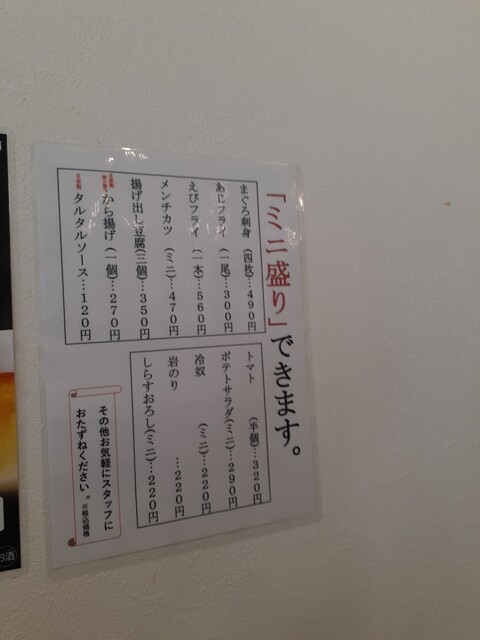 「ミニ盛り」できます。
まぐろ刺身(四枚)…490円
あじフライ(一尾)…300円
えびフライ(一本)…560円
メンチカツ(ミニ)…470円
揚げ出し豆腐(三個)…350円
から揚げ(一個)…270円
自家製
タルタルソース…120円
トマト(半個)…320円
ポテトサラダ(ミニ)…290円
冷奴(ミニ)…220円
岩のり…220円
しらすおろし(ミニ)…220円
その他お気軽にスタッフに
おたずねください。※税込価格
お酒